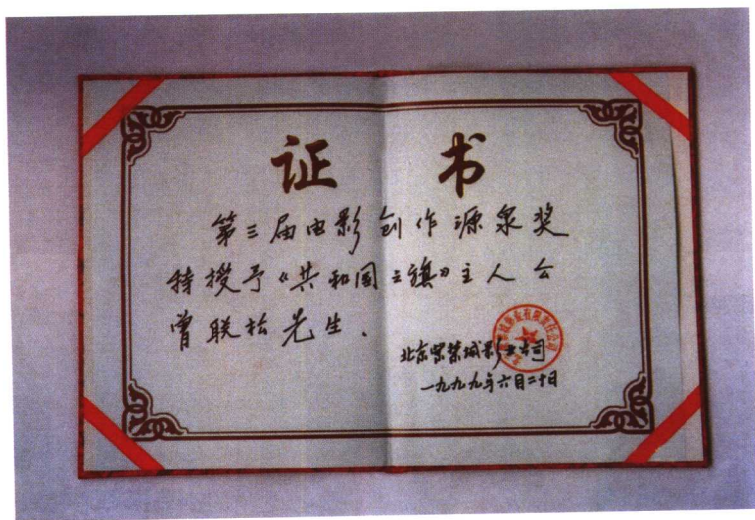 证 书
第三届电影创作源泉奖
特授予《共和国之旗》主人公
曾联松先生.
北京紫禁城影业公司
一九九九年六月二十日